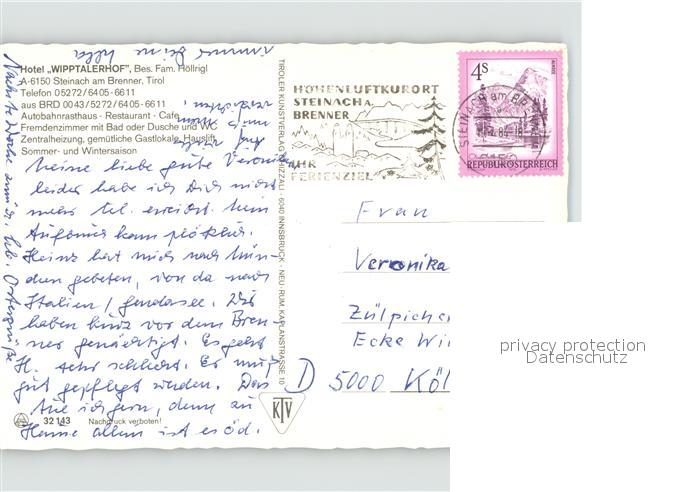 immer Deine Hilde
Hotel „WIPPTALERHOF", Bes. Fam. Höllrigl
A-6150 Steinach am Brenner, Tirol
Telefon 05272/6405-6611
aus BRD 0043/5272/6405-6611
Autobahnrasthaus - Restaurant - Cafe
Fremdenzimmer mit Bad oder Dusche und WC
Zentralheizung, gemütliche Gastlokale, Hauslift
Sommer- und Wintersaison
Meine liebe gute Veronika
leider habe ich Dich nicht
mehr tel. erreicht. Mein
Aufbruch kam plötzlich.
Heinz hat mich nach Mün-
chen gebeten, von da nach
Italien / Gardasee. Wir
haben kurz vor dem Bren-
ner genächtigt. Es geht
H. sehr schlecht. Er muß
gut gepflegt werden. Das
tue ich gern, denn zu
Hause allein ist es öd.
Nächste Woche zurück. Lb. Ostergrüße
32143 Nachdruck verboten!
TIROLER KUNSTVERLAG CHIZZALI · 6040 INNSBRUCK · NEU-RUM, KAPLANSTRASSE 10
KTV
HÖHENLUFTKURORT
STEINACH A.
BRENNER
IHR
FERIENZIEL
4S
REPUBLIK ÖSTERREICH
STEINACH am BRENNER
Frau
Veronika
Zülpicher
Ecke
D 5000 Köl
privacy protection
Datenschutz